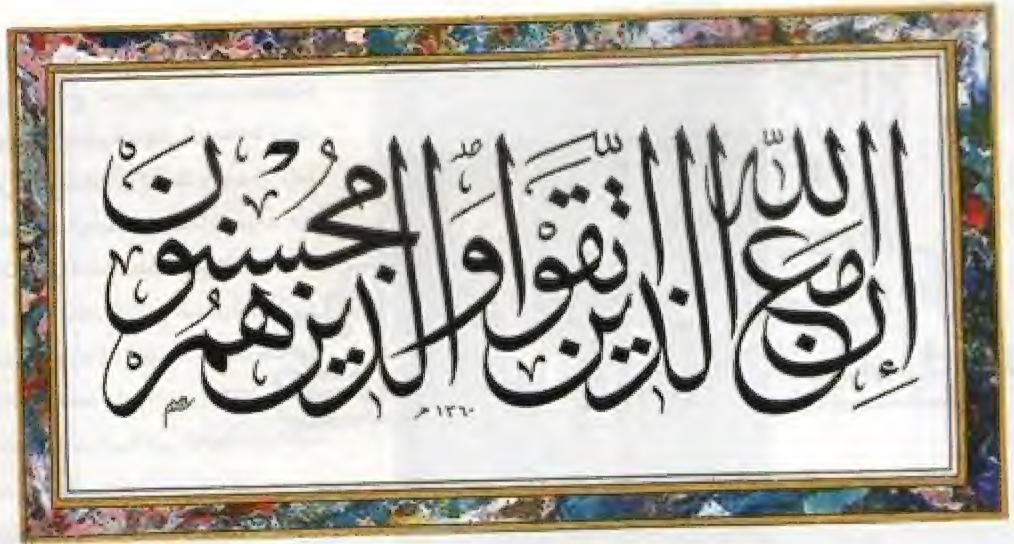 إن الله مع الذين اتقوا والذين هم محسنون
١٣٦٠ هـ